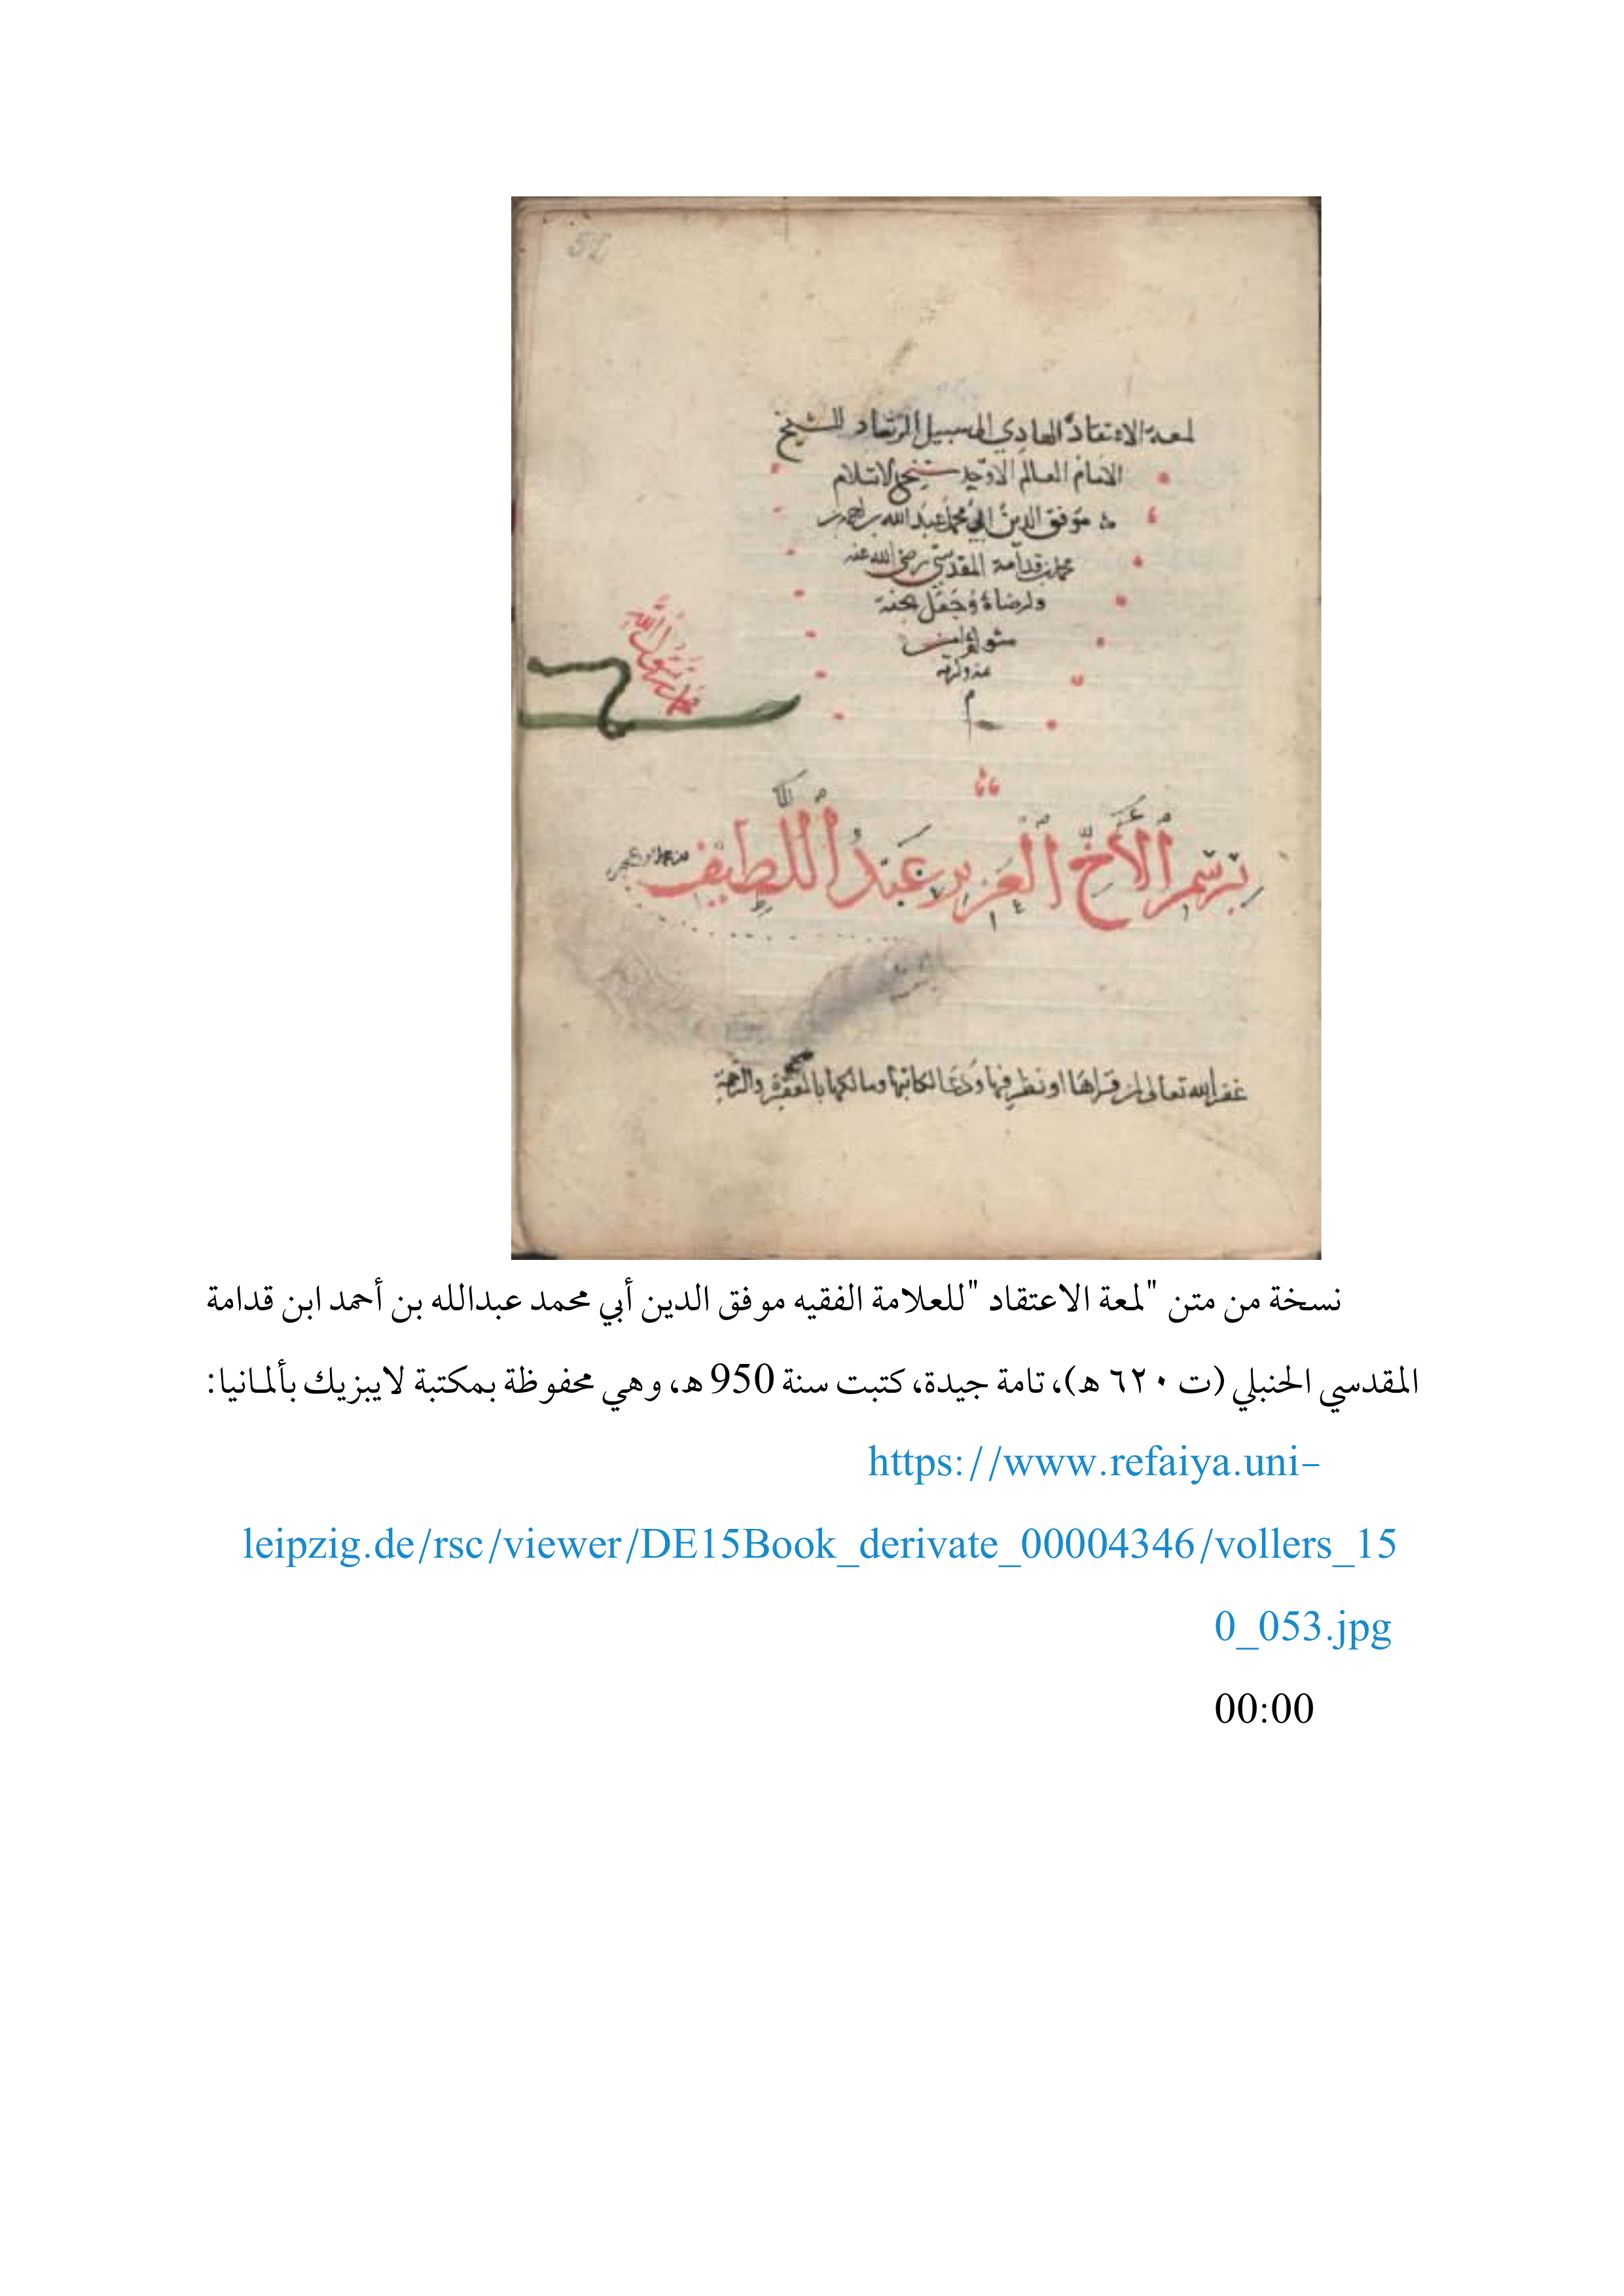 52
لمعة الاعتقاد الهادي الى سبيل الرشاد للشيخ
الامام العالم الاوحد شيخ الاسلام
موفق الدين ابي محمد عبد الله بن احمد بن
محمد بن قدامة المقدسي رضي الله عنه
وارضاه وجعل الجنة
مثواه امين
بمنه وكرمه
م
محمد رسول الله
برسم الأخ العزيز عبد اللطيف
غفر الله تعالى لمن قراها او نظر فيها ودعا لكاتبها ومالكها بالمغفرة والرحمة
نسخة من متن "لمعة الاعتقاد "للعلامة الفقيه موفق الدين أبي محمد عبدالله بن أحمد ابن قدامة
المقدسي الحنبلي (ت ٦٢٠ هـ)، تامة جيدة، كتبت سنة 950 هـ، وهي محفوظة بمكتبة لايبزيك بألمانيا:
https://www.refaiya.uni-
leipzig.de/rsc/viewer/DE15Book_derivate_00004346/vollers_15
0_053.jpg
00:00